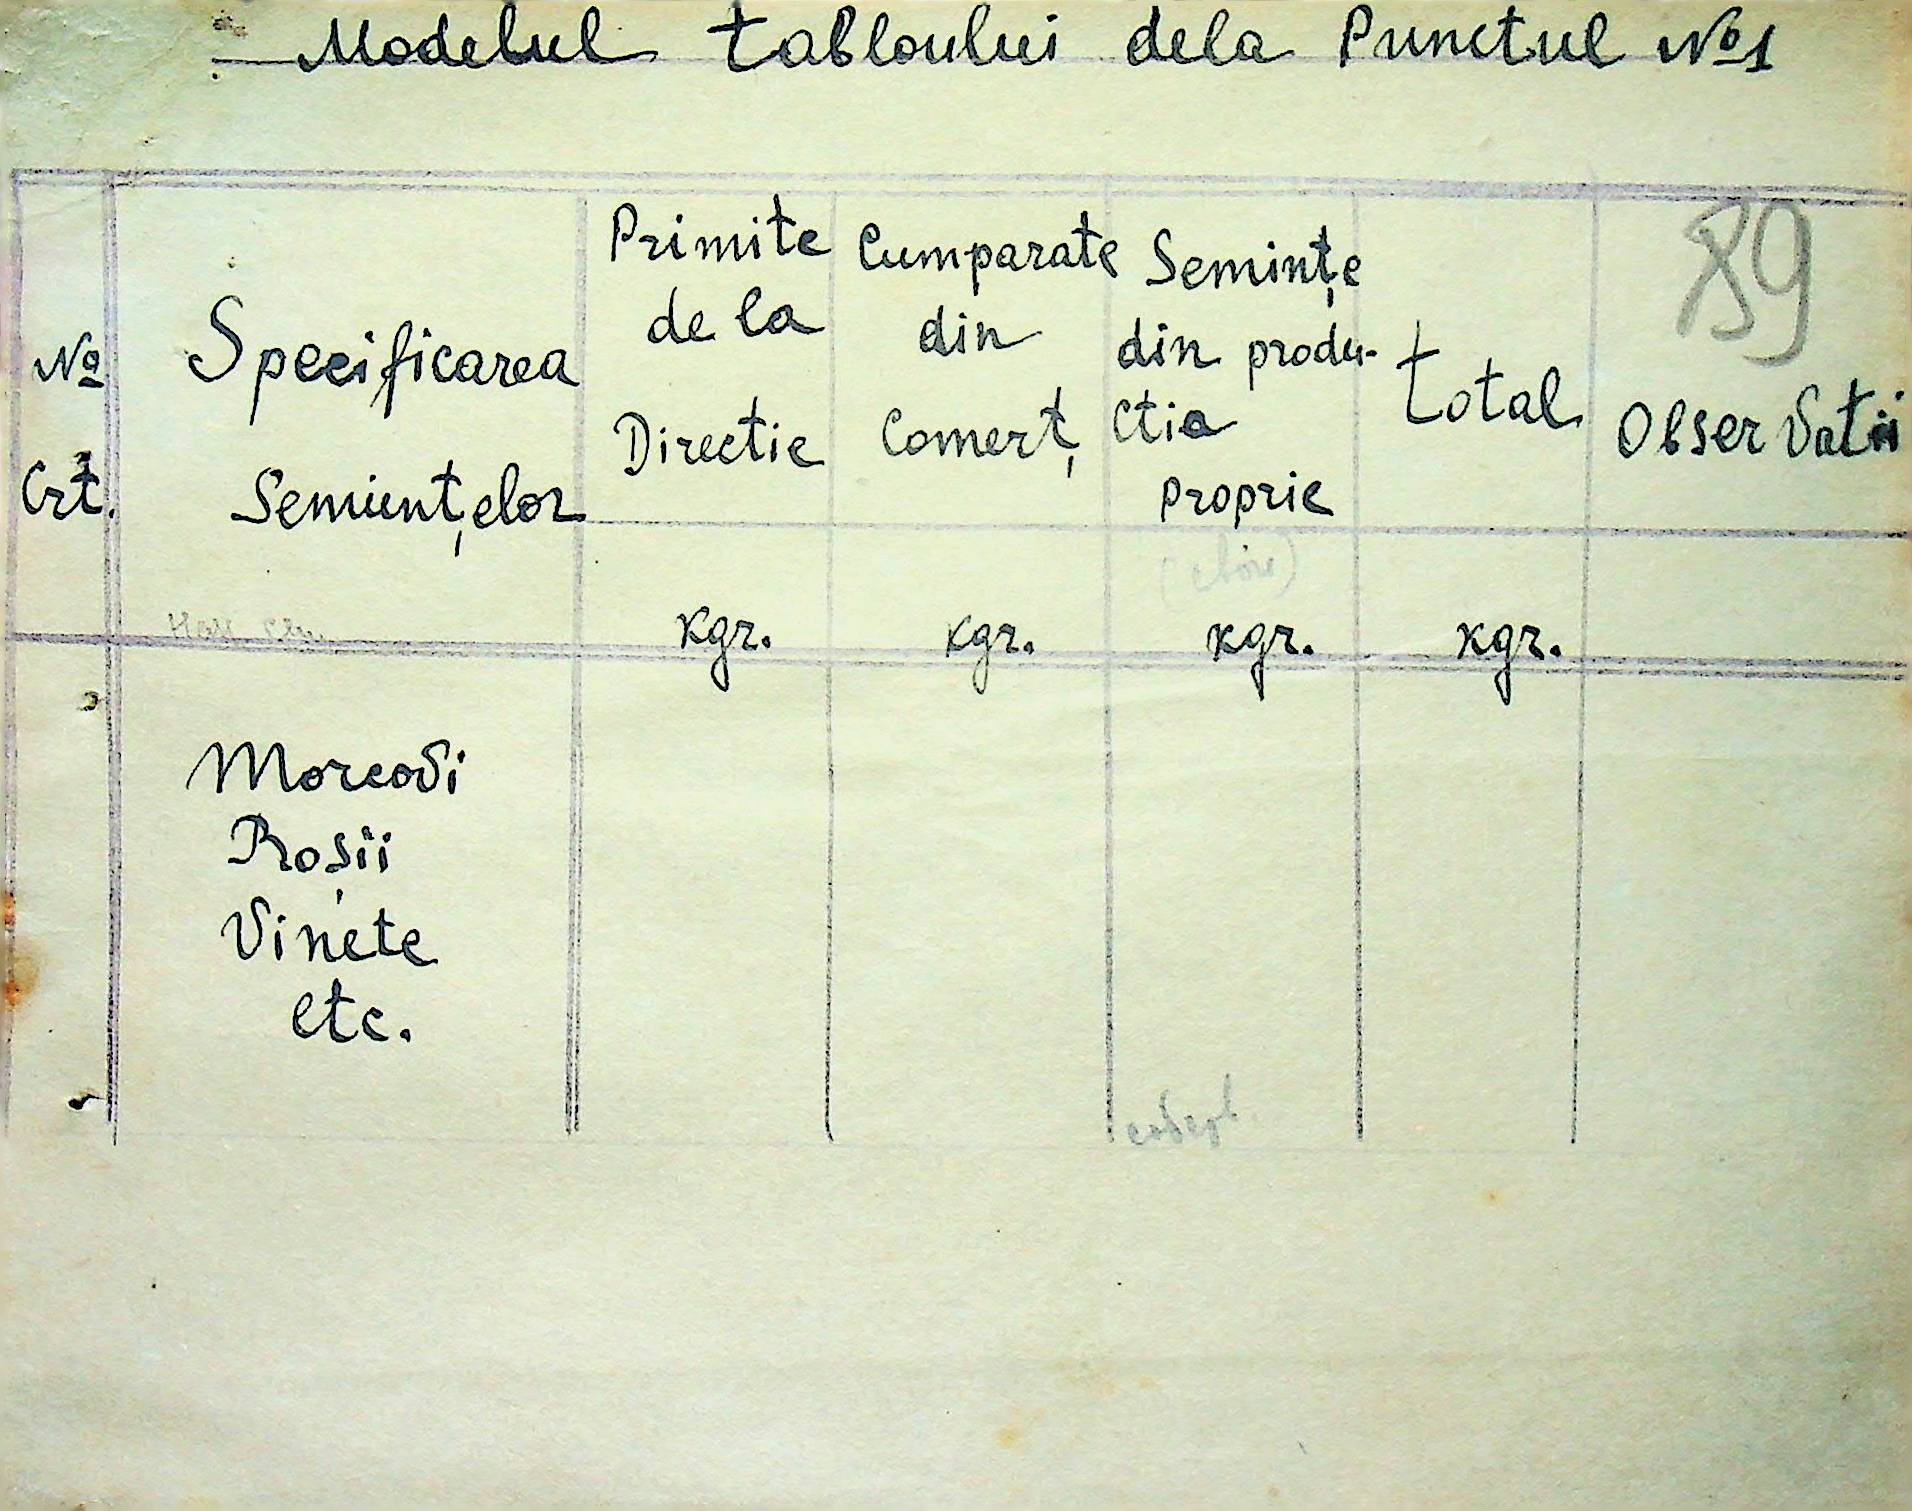 Modelul tabloului dela Punctul No 1
89
No
Crt.
Specificarea
Semiunțelor
Primite
de la
Directie
Cumparate
din
Comerț
Semințe
din produ-
ctia
proprie
total
Observatii
kgr.
kgr.
kgr.
kgr.
Morcovi
Roșii
Vinete
etc.